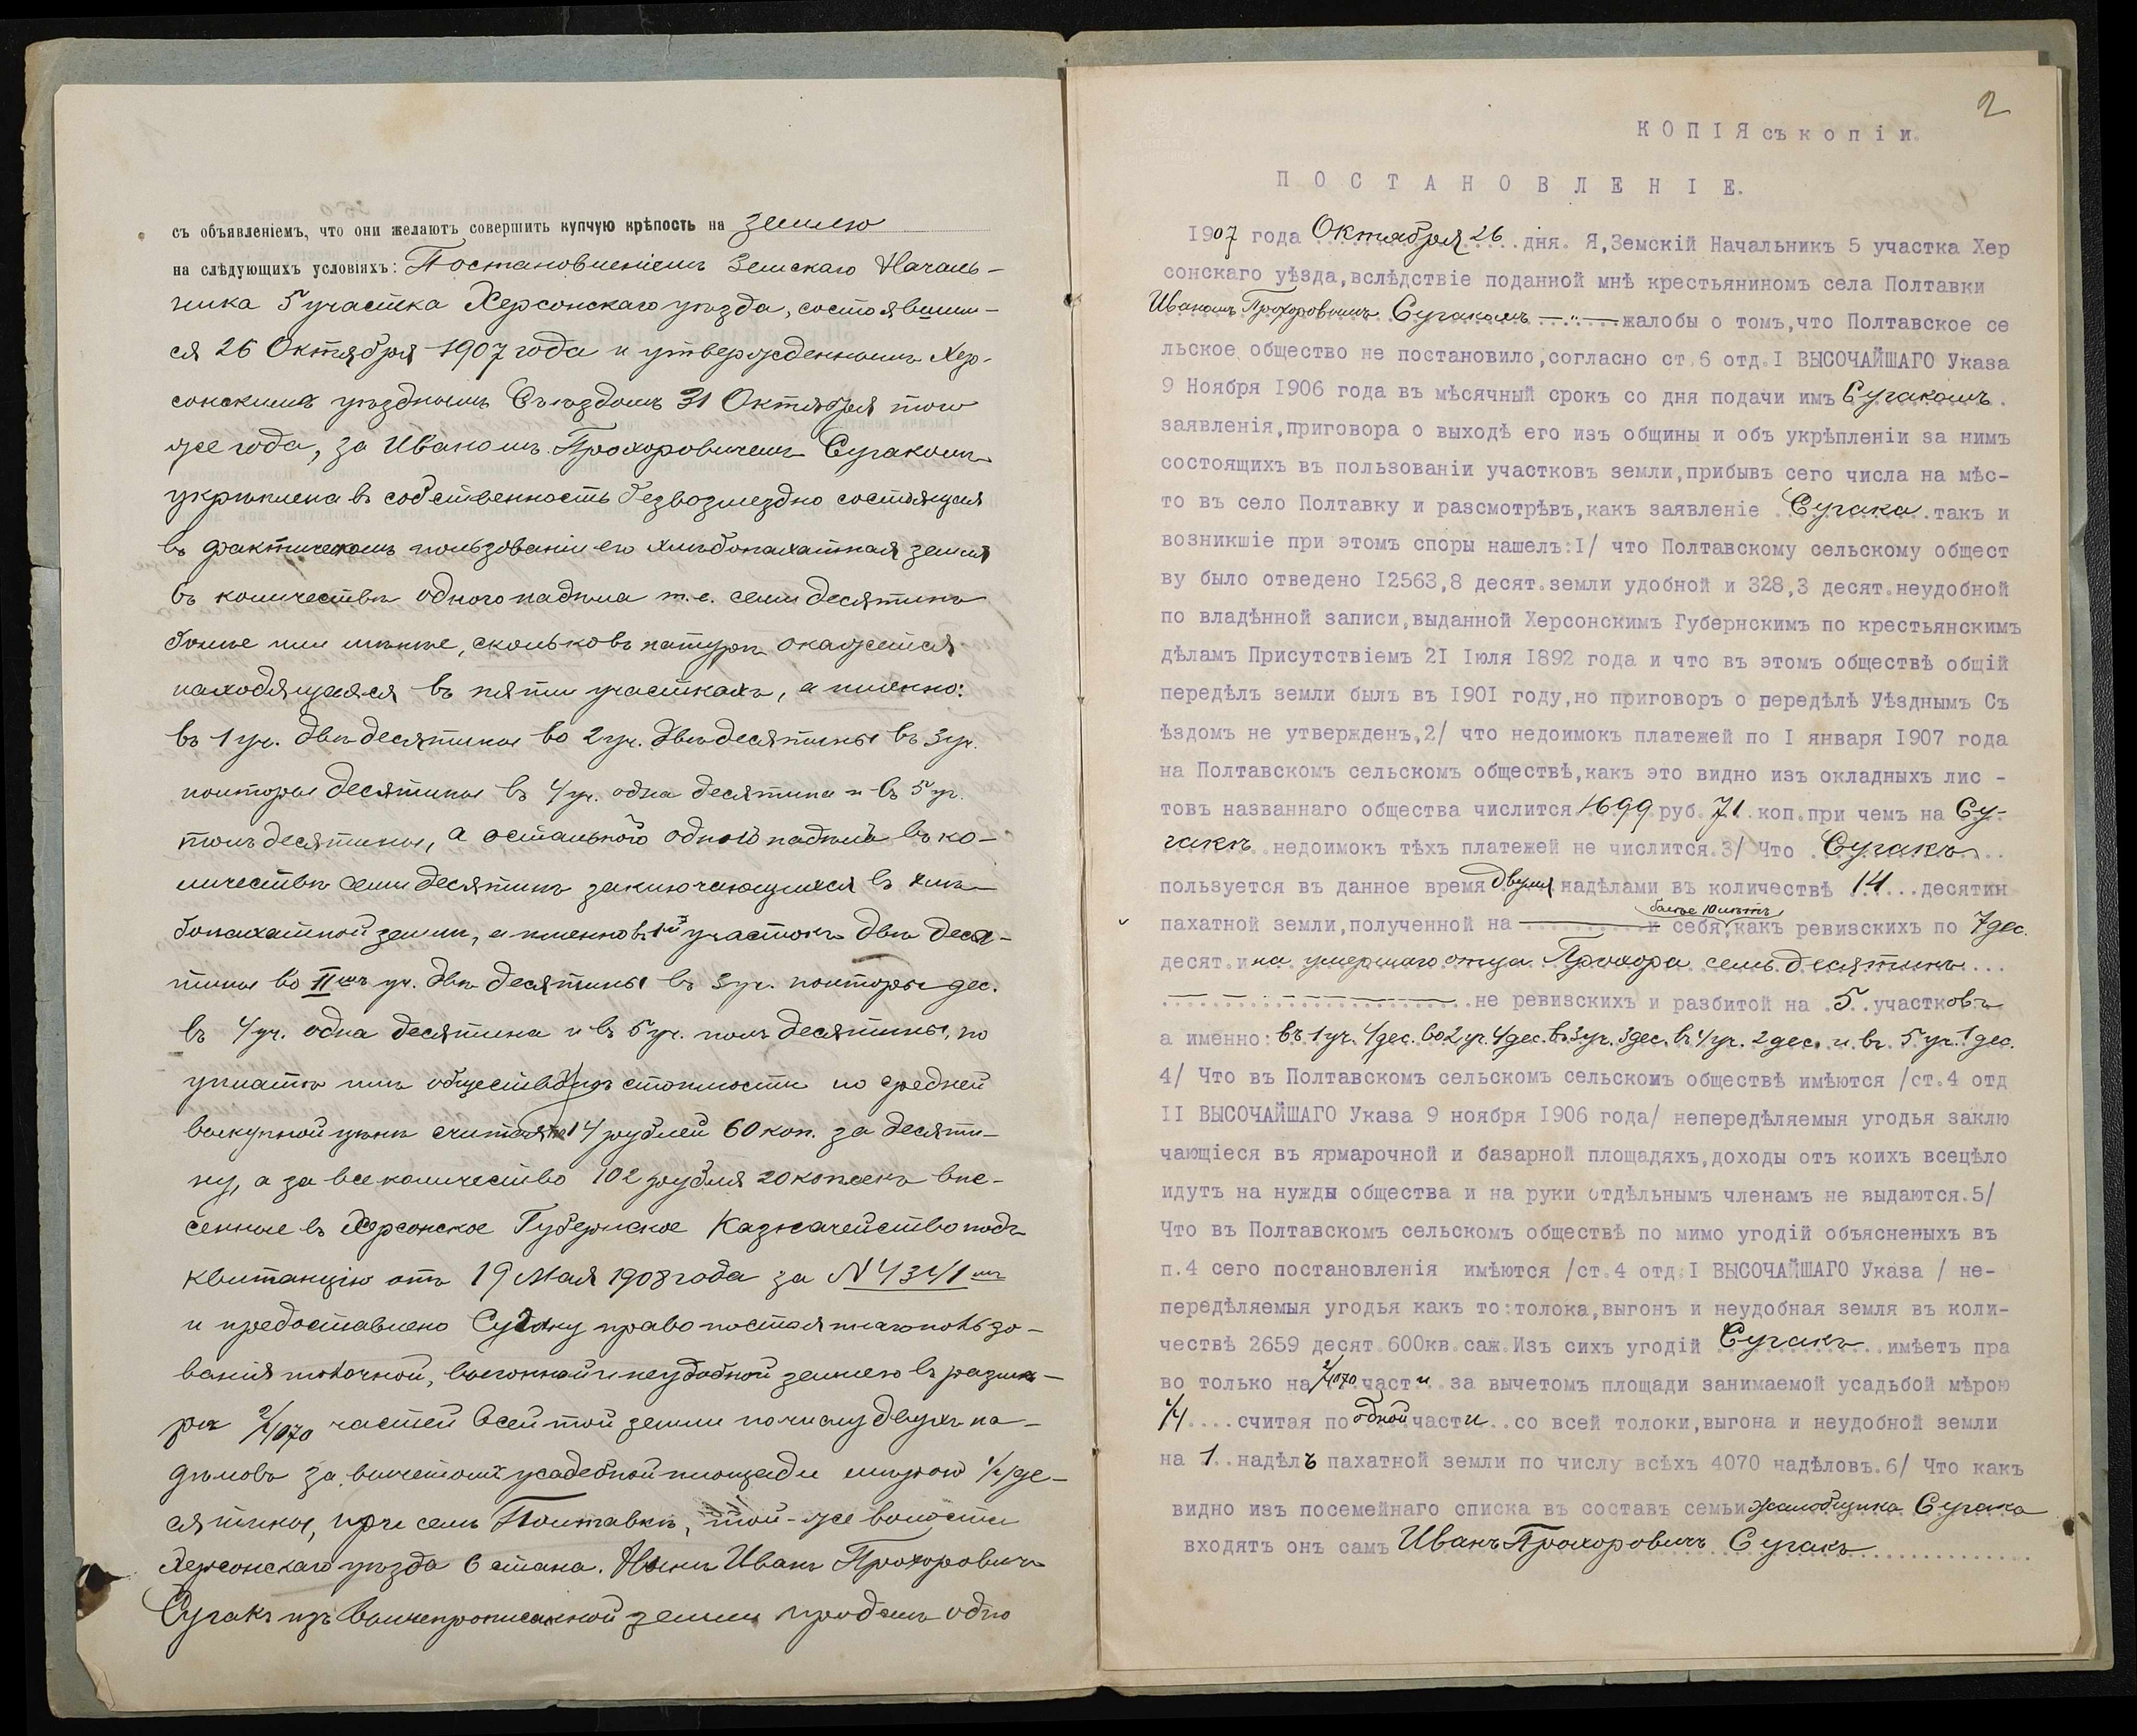 съ объявленіемъ, что они желаютъ совершить купчую крѣпость на землю
на слѣдующихъ условіяхъ: Постановленіемъ Земскаго Началь-
ника 5 участка Херсонскаго уѣзда, состоявшим-
ся 26 Октября 1907 года и утвержденнымъ Хер-
сонскимъ уѣзднымъ Съѣздомъ 31 Октября того
же года, за Иваномъ Прохоровичемъ Сугакомъ
укрѣплена въ собственность безвозмездно состоящая
въ фактическомъ пользованіи его хлѣбопахатная земля
въ количествѣ одного надѣла т.е. семи десятинъ
болѣе или менѣе, сколько въ натурѣ окажется
находящаяся въ пяти участкахъ, а именно:
въ 1 уч. двѣ десятины во 2 уч. двѣ десятины въ 3 уч.
полторы десятины въ 4 уч. одна десятина и въ 5 уч.
полъ десятины, а остального одного надѣла въ ко-
личествѣ семи десятинъ заключающихся въ хлѣ-
бопахатной земли, а именно въ 1й участокъ двѣ деся-
тины во IIмъ уч. двѣ десятины въ 3 уч. полторы дес.
въ 4 уч. одна десятина и въ 5 уч. полъ десятины, по
уплатѣ имъ обществу стоимости по средней
выкупной цѣнѣ считая по 14 рублей 60 коп. за десяти-
ну, а за все количество 102 рубля 20 копѣекъ вне-
сенные въ Херсонское Губернское Казначейство подъ
квитанцію отъ 19 Мая 1908 года за N 4341мъ
и предоставлено Сугаку право постояннаго пользо-
ванія толочной, выгонной и неудобной землею въ размѣ-
рѣ 2/4070 частей всей той земли по числу двухъ на-
дѣловъ за вычетомъ усадебной площади мѣрою 1/4 де-
сятины, при селѣ Полтавкѣ, той-же волости
Херсонскаго уѣзда 6 стана. Нынѣ Иванъ Прохоровичъ
Сугакъ изъ вышепрописанной земли продалъ одно
2
КОПІЯ съ копіи.
ПОСТАНОВЛЕНІЕ.
1907 года Октября 26 дня. Я,Земскій Начальникъ 5 участка Хер
сонскаго уѣзда,вслѣдствіе поданной мнѣ крестьяниномъ села Полтавки
Иваномъ Прохоровымъ Сугакомъ —"— жалобы о томъ,что Полтавское се
льское общество не постановило,согласно ст.6 отд.I ВЫСОЧАЙШАГО Указа
9 Ноября 1906 года въ мѣсячный срокъ со дня подачи имъ Сугакомъ.
заявленія,приговора о выходѣ его изъ общины и объ укрѣпленіи за нимъ
состоящихъ въ пользованіи участковъ земли,прибывъ сего числа на мѣс-
то въ село Полтавку и разсмотрѣвъ,какъ заявленіе Сугака такъ и
возникшіе при этомъ споры нашелъ:I/ что Полтавскому сельскому общест
ву было отведено 12563,8 десят.земли удобной и 328,3 десят.неудобной
по владѣнной записи,выданной Херсонскимъ Губернскимъ по крестьянскимъ
дѣламъ Присутствіемъ 21 Іюля 1892 года и что въ этомъ обществѣ общій
передѣлъ земли былъ въ 1901 году,но приговоръ о передѣлѣ Уѣзднымъ Съ
ѣздомъ не утвержденъ,2/ что недоимокъ платежей по I января 1907 года
на Полтавскомъ сельскомъ обществѣ,какъ это видно изъ окладныхъ лис -
товъ названнаго общества числится 1699 руб. 71 коп.при чемъ на Су-
гакѣ недоимокъ тѣхъ платежей не числится.3/ Что Сугакъ
пользуется въ данное время двумя надѣлами въ количествѣ 14 десятин
болѣе 10 лѣтъ
пахатной земли,полученной на и себя,какъ ревизскихъ по 7 дес.
десят.и на умершаго отца Прохора семь десятинъ
не ревизскихъ и разбитой на 5 участковъ
а именно: въ 1 уч. 4 дес. во 2 уч. 4 дес. въ 3 уч. 3 дес. въ 4 уч. 2 дес. и въ 5 уч. 1 дес.
4/ Что въ Полтавскомъ сельскомъ сельскомъ обществѣ имѣются /ст.4 отд
II ВЫСОЧАЙШАГО Указа 9 ноября 1906 года/ непередѣляемыя угодья заклю
чающіеся въ ярмарочной и базарной площадяхъ,доходы отъ коихъ всецѣло
идутъ на нужды общества и на руки отдѣльнымъ членамъ не выдаются.5/
Что въ Полтавскомъ сельскомъ обществѣ по мимо угодій объясненыхъ въ
п.4 сего постановленія имѣются /ст.4 отд.I ВЫСОЧАЙШАГО Указа / не-
передѣляемыя угодья какъ то:толока,выгонъ и неудобная земля въ коли-
чествѣ 2659 десят.600кв.саж.Изъ сихъ угодій Сугакъ имѣетъ пра
во только на 2/4070 части за вычетомъ площади занимаемой усадьбой мѣрою
1/4 считая по одной части со всей толоки,выгона и неудобной земли
на 1 надѣлъ пахатной земли по числу всѣхъ 4070 надѣловъ.6/ Что какъ
видно изъ посемейнаго списка въ составъ семьи жалобщика Сугака
входятъ онъ самъ Иванъ Прохоровичъ Сугакъ